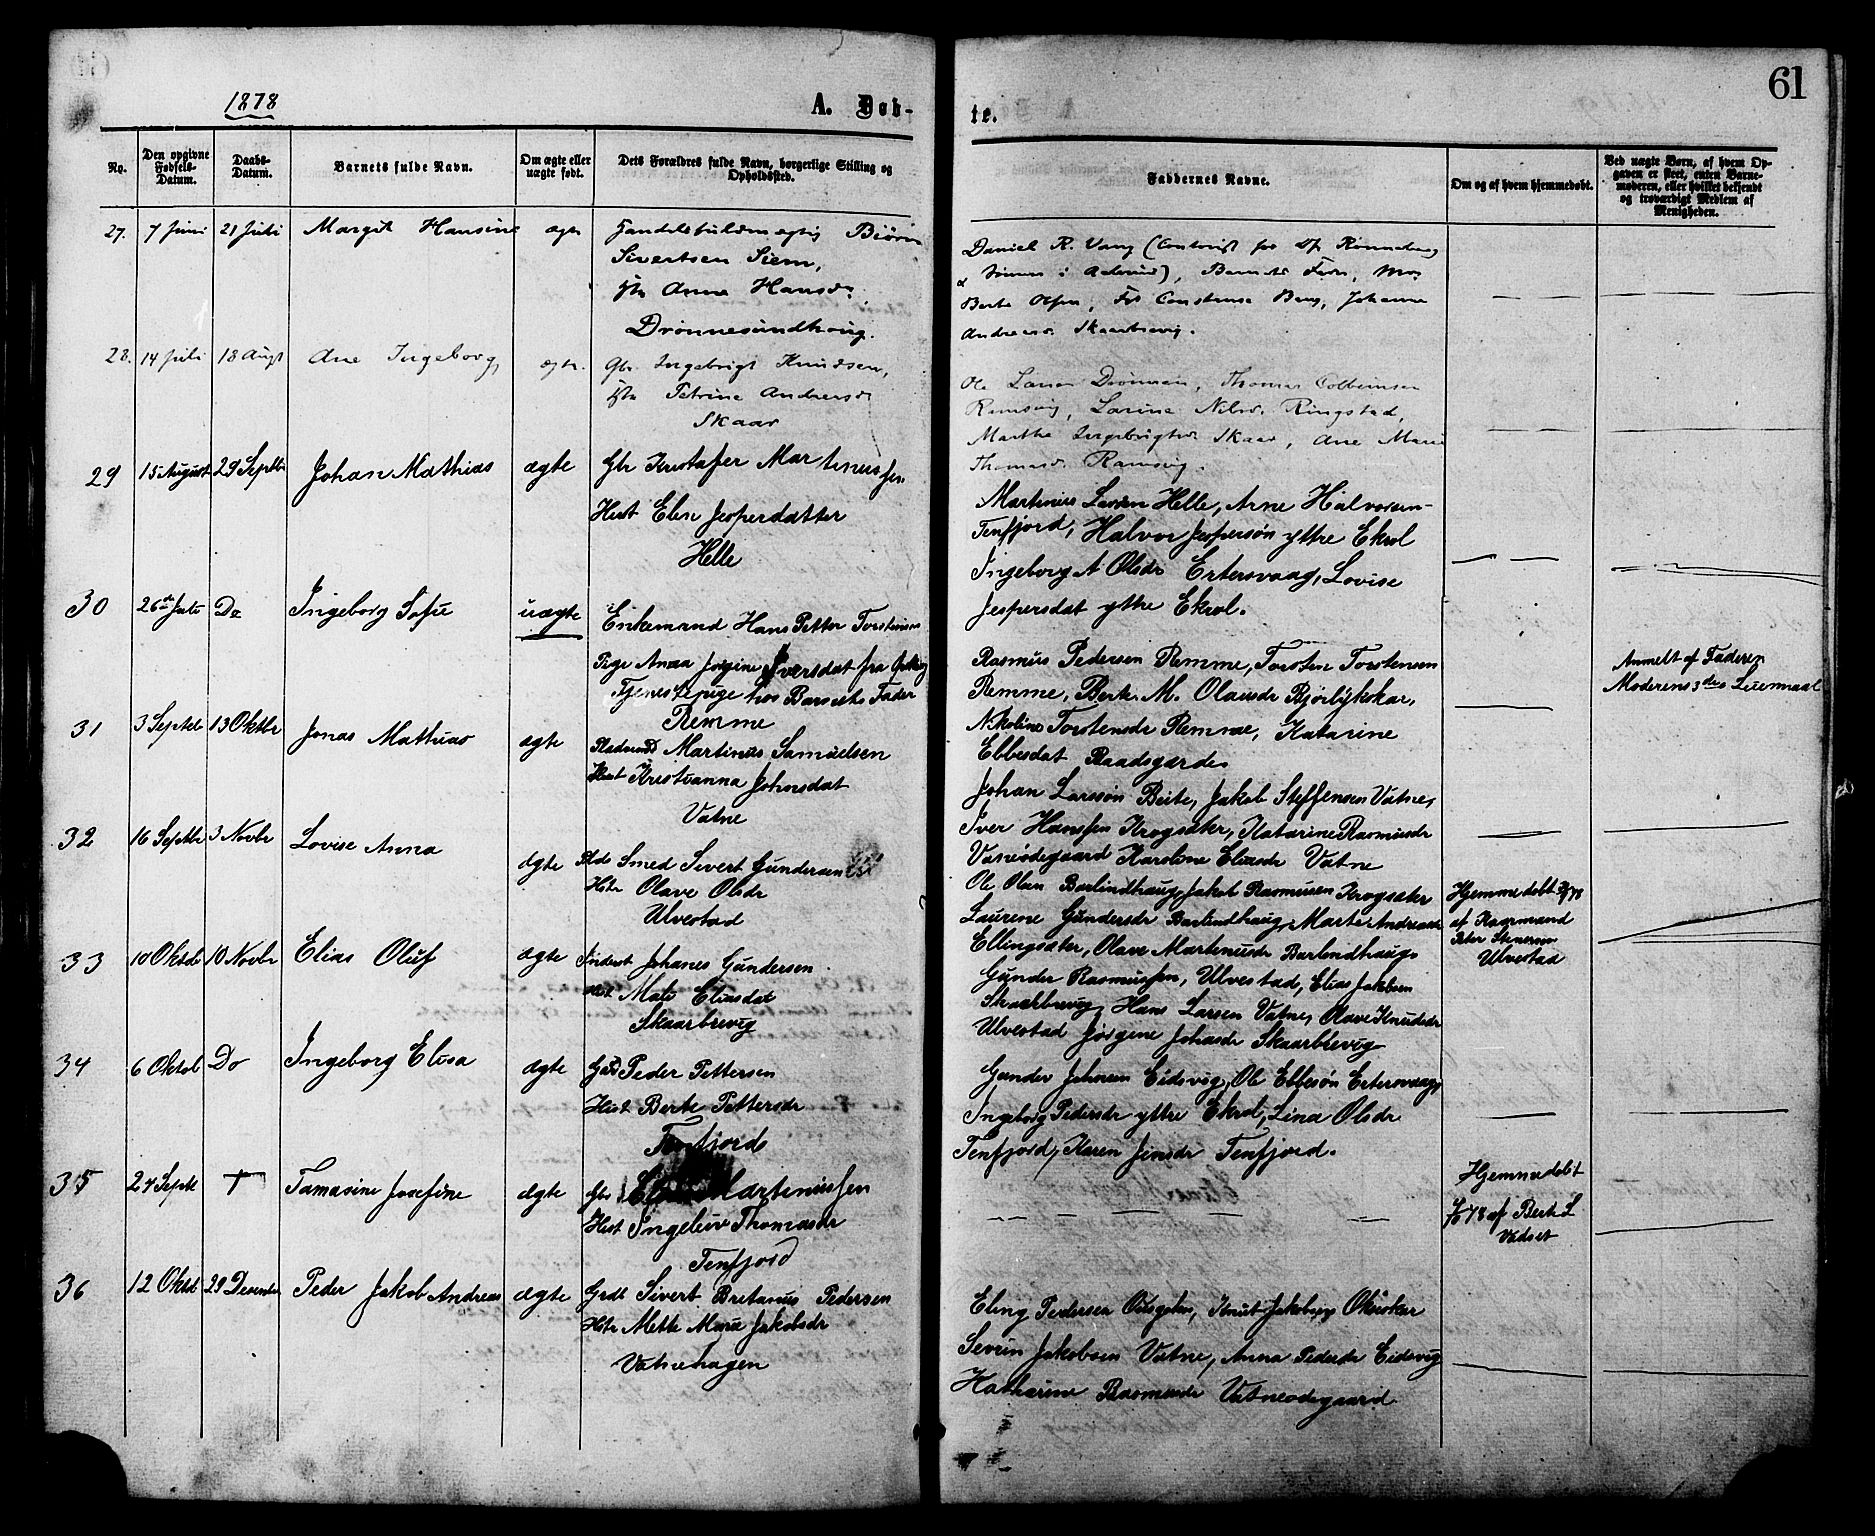 61
1878
A. Døb-
te.
No.
Den opgivne Fødsels-Datum.
Daabs-Datum.
Barnets fulde Navn.
Om ægte eller uægte født.
Dets Forældres fulde Navn, borgerlige Stilling og Opholdssted.
Faddernes Navne.
Om og af hvem hjemmedøbt.
Ved uægte Børn, af hvem Opgaven er skeet, enten Barnemoderen, eller hvilket bekjendt og troværdigt Medlem af Menigheden.
27. 7 Juni 21 Juli Margit Hansine ægte
Handelsfuldmægtig Biørn
Sivertsen Siem,
Anne Hansdr.
Drønnesundhoug.
Daniel R. Vang
Berte Olsen, Constanse Berg, Johanne
Andreasd. Skaarbrevig.
28. 14 Juli 18 Augt Ane Ingeborg ægte.
Gbr Ingebrigt Knudsen,
Petrine Andreasd
Skaar
Ole Larsen Drønnen, Thomas Colbensen
Ramsvig, Larine Nilsd. Ringstad,
Marthe Ingebrigtsd Skaar, Ane Marie
Thomasd. Ramsvig.
29 15 August 29 Septbr Johan Mathias ægte
Gbr Kristafer Martinussen
Hust Elen Jesperdatter
Helle
Martinus Larsen Helle, Arne Halvorsen
Tenfjord, Halvor Jespersøn yttre Ekrol
Ingeborg A Olsdr Ertersvaag, Lovise
Jespersdat yttre Ekrol.
30 26de Juli Do Ingeborg Sofie uægte
Enkemand Hans Petter Torstensen
Pige Anna Jorgine Iversdat fra
Tjenestepige hos Barnets Fader
Remme
Rasmus Pedersen Remme, Torsten Torstensen
Remme, Berte M. Olausdr Bjørlykskar,
Nikoline Torstensdr Remme, Katarine
Ebbesdat Raadsgarde
Anmelt af Faderen
Moderens 3die Leiermaal
31 3 Septbr 13 Oktbr Jonas Mathias ægte
Martinus Samuelsen
Hust Kristianna Johnsdat
Vatne
Johan Larssøn Beite, Jakob Steffensen Vatne,
Iver Hanssen Krogsæter, Katarine Rasmusdr
Vatneødegaard Karoline Eliasdr Vatne
32 16 Septbr 3 Novbr Lovise Anna ægte
Smed Sivert Gundersen
Hstr Olave Olsdr
Ulvestad
Ole Olsen Barlindhaug, Jakob Rasmussen Krogsæter
Laurene Gundersdr Barlindhaug, Marte Andreasdr
Ellingsæter, Olave Martinusdr Barlindhaug
Hjemmedøbt
af Kaarmand
Peter Stenersen
Ulvestad
33 10 Oktbr 10 Novbr Elias Oluf ægte
Inderst Johanes Gundersen
Hust Mate Eliasdat
Skaarbrevig
Gunder Rasmussen, Ulvestad, Elias Jakobsen
Skaarbrevig, Hans Larsen Vatne, Olave Knudsdr
Ulvestad Jørgene Johansdr Skaarbrevig
34 6 Oktob Do Ingeborg Elisa ægte
Gbr Peder Pettersen
Hust Berte Pettersdr
Tenfjord
Gunder Johnsen Eidsvig, Ole Ebbesøn Ertersvaag,
Ingeborg Pedersdr yttre Ekrol, Lina Olsdr
Tenfjord, Karen Jensdr Tenfjord.
35 27 Septr † Tamasine Josefine ægte
Gbr Martinussen
Hust Ingeleiv Thomasdr
Tenfjord
Hjemmedøbt
78 af Berte L
Vadset
36 12 Oktbr 29 Desember Peder Jakob Andreas ægte
Grdb Sivert Bretanus Pedersen
Hstr Mette Marie Jakobsdr
Vatnehagen
Eling Pedersen, Knut Jakobsen
Severin Jakobsen Vatne, Anna Pedersdr Eidsvig
Katharine Rasmusdr Vatneødegaard